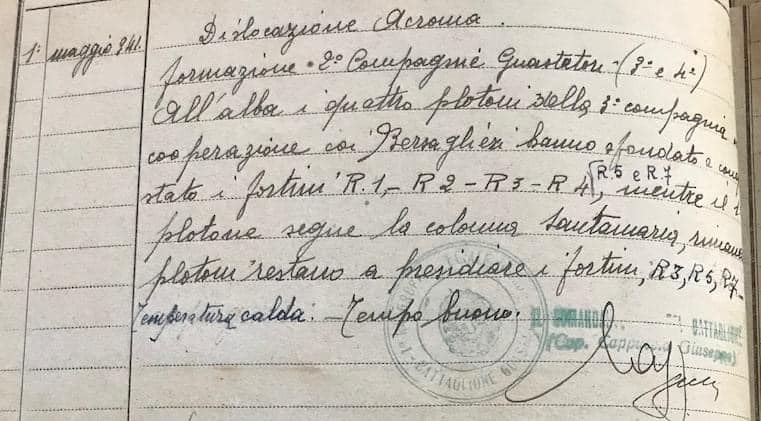 Dislocazione Acroma.
1° maggio 941.
formazione · 2° Compagnie Guastatori - (3ª e 4ª)
All'alba i quattro plotoni della 3ª compagnia
cooperazione coi Bersaglieri hanno sfondato e
stato i fortini R.1, - R 2 - R 3 - R 4, R 5 e R.7, mentre il
plotone segue la colonna Santamaria,
plotoni restano a presidiare i fortini, R3, R5, R7-
Temperatura calda. - Tempo buono.
IL COMANDA BATTAGLIONE
(Cap. Cappuccio Giuseppe)
BATTAGLIONE